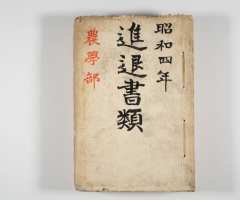 昭和四年
進退書類
農學部